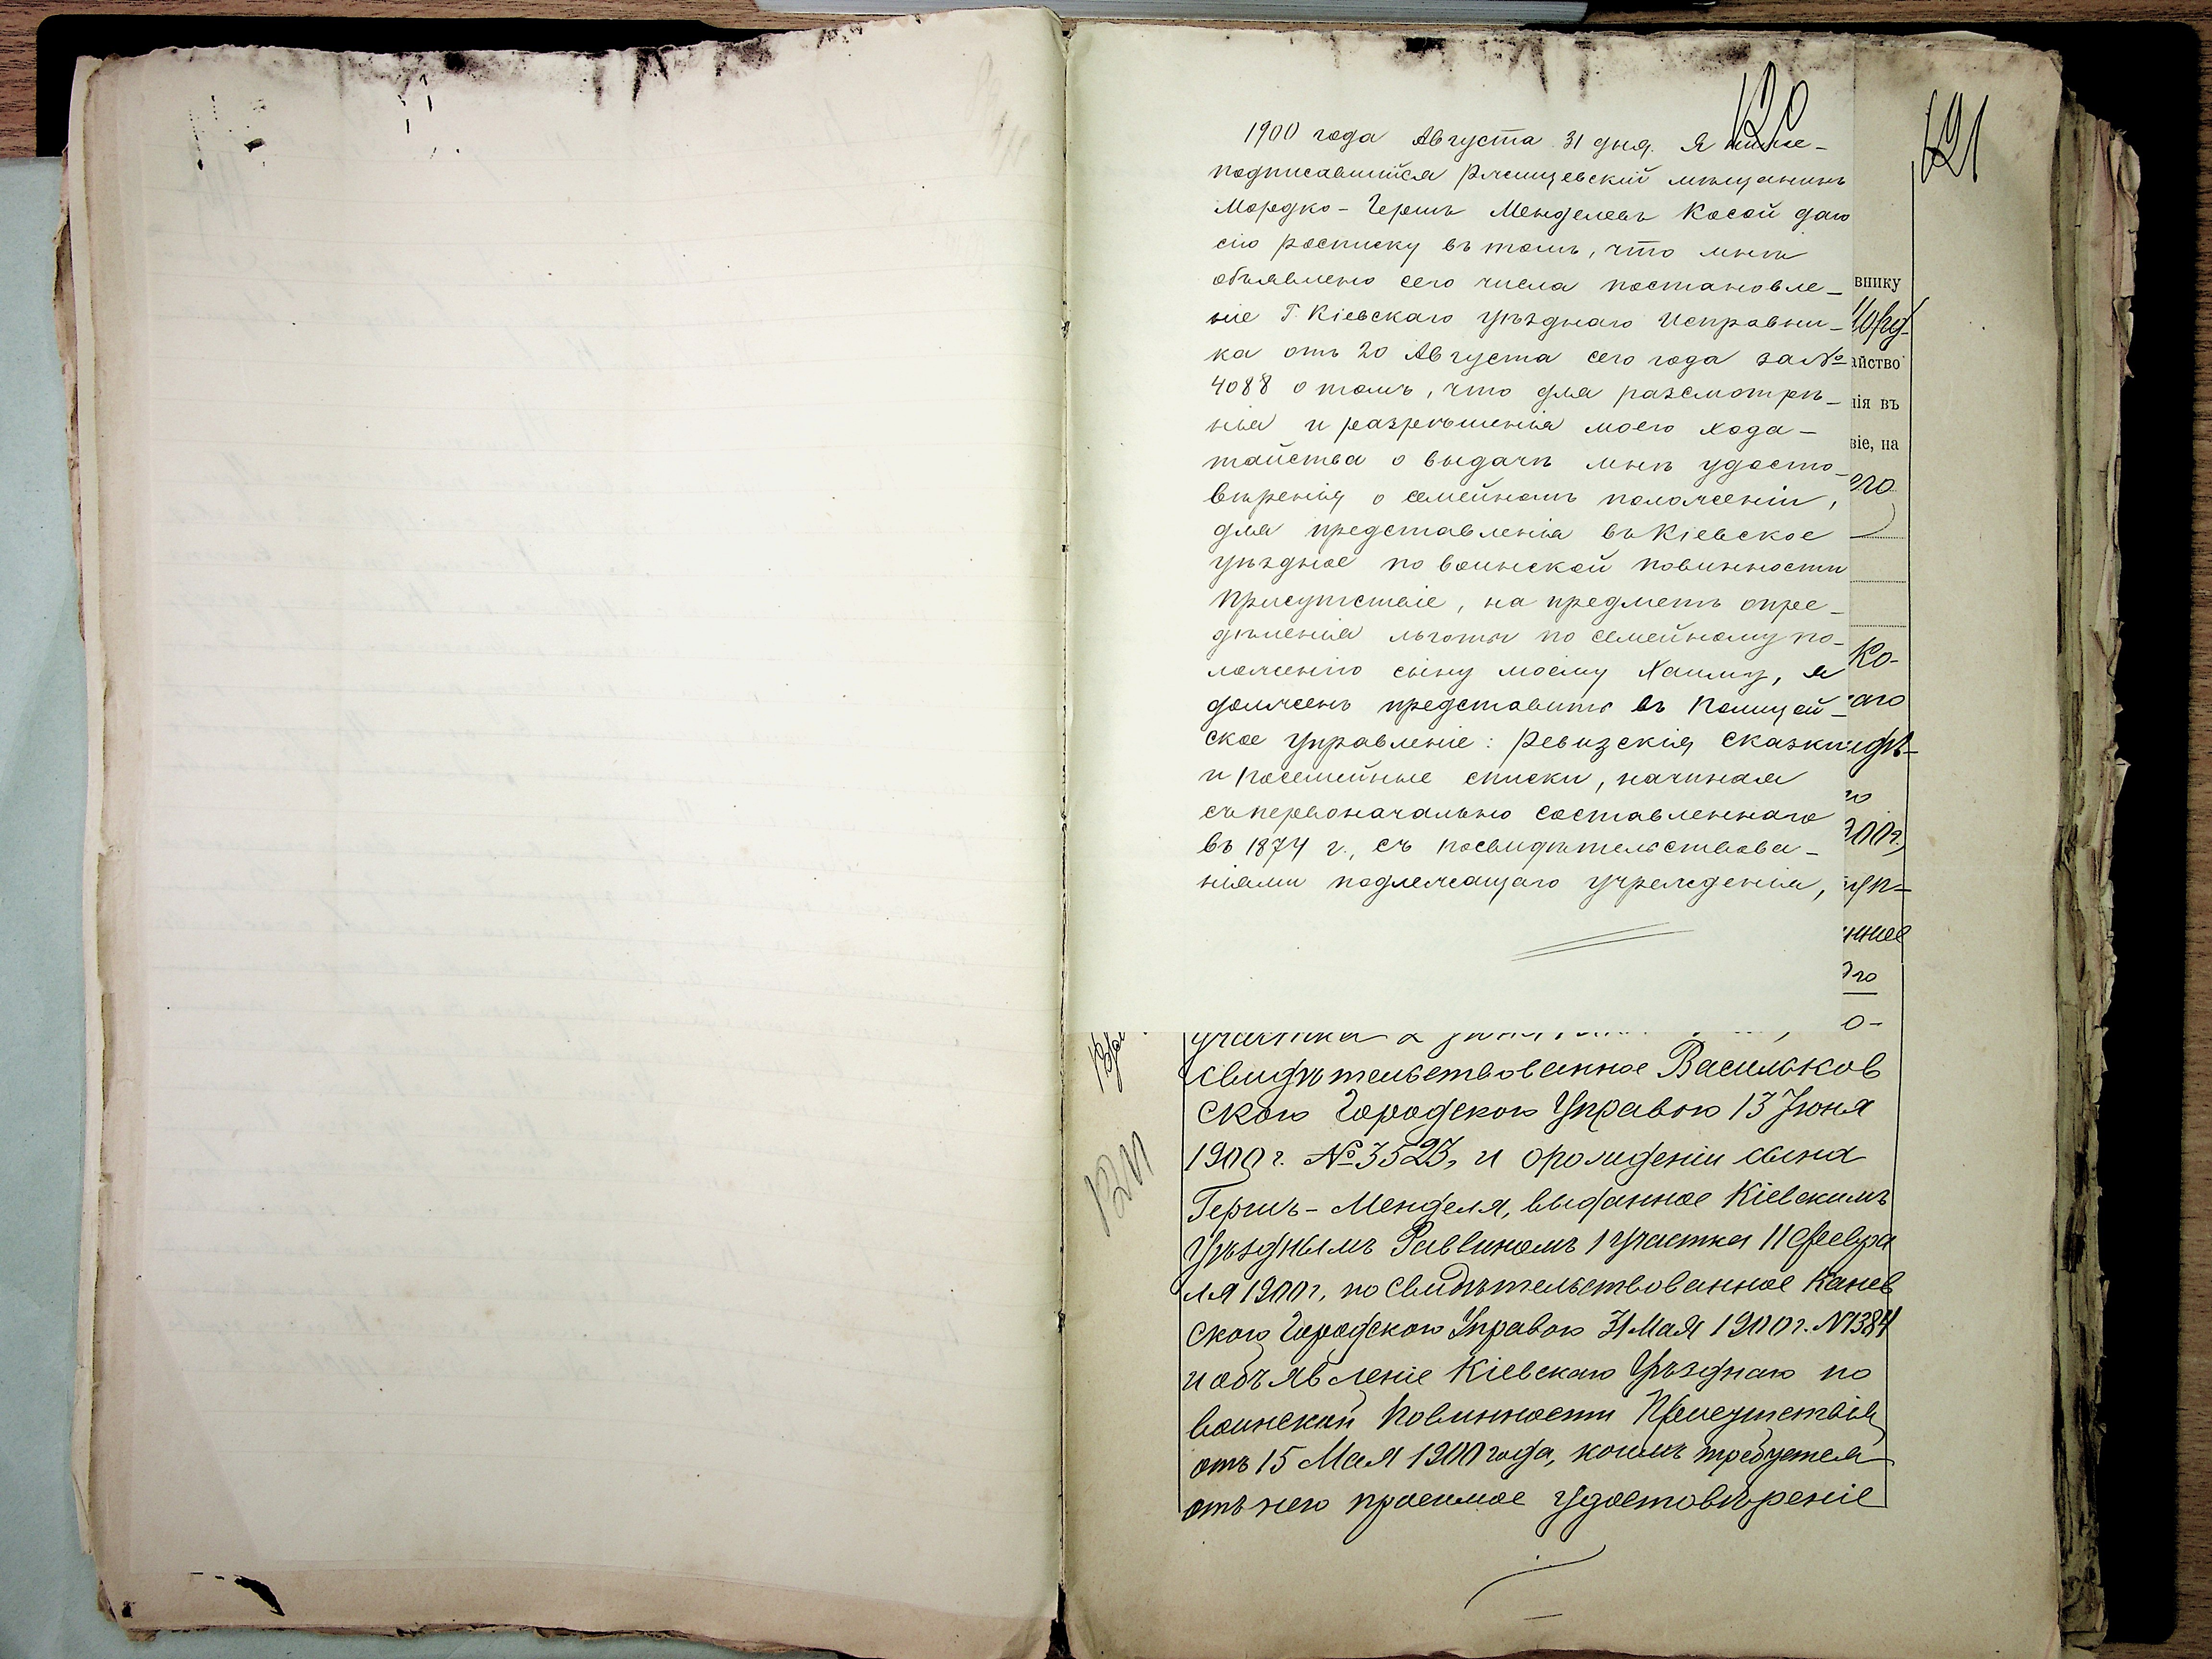 120
1900 года Августа 31 дня. Я ниже-
подписавшійся Ржищевскій мѣщанинъ
Мордко-Гершъ Менделевъ Косой даю
сію росписку въ томъ, что мнѣ
объявлено сего числа постановле-
ніе Г. Кіевскаго уѣзднаго Исправни-
ка отъ 20 Августа сего года за №
4088 о томъ, что для разсмотрѣ-
нія и разрѣшенія моего хода-
тайства о выдачѣ мнѣ удосто-
вѣренія о семейномъ положеніи,
для представленія въ Кіевское
уѣздное по воинской повинности
Присутствіе, на предметъ опре-
дѣленія льготы по семейному по-
ложенію сыну моему Хаиму, я
долженъ представить въ Полицей-
ское Управленіе: Ревизскія сказки
и посемейные списки, начиная
съ первоначально составленнаго
въ 1874 г., съ посвидѣтельствова-
ніями подлежащаго учрежденія,
121
внику
айство
нія въ
віе, на
его
Ко-
аго
идѣ-
го
900 г.,
нное
о-
участка
свидѣтельствованное Васильков
скою Городскою Управою 13 Іюня
1900 г. № 3523, и о рожденіи сына
Гершъ-Менделя, выданное Кіевскимъ
Уѣзднымъ Раввиномъ 1 участка 11 Февра
ля 1900 г., посвидѣтельствованное Канев
скою Городскою Управою 31 Мая 1900 г. № 1384
и объявленіе Кіевскаго Уѣзднаго по
воинской Повинности Присутствія
отъ 15 Мая 1900 года, коимъ требуется
отъ него просимое удостовѣреніе